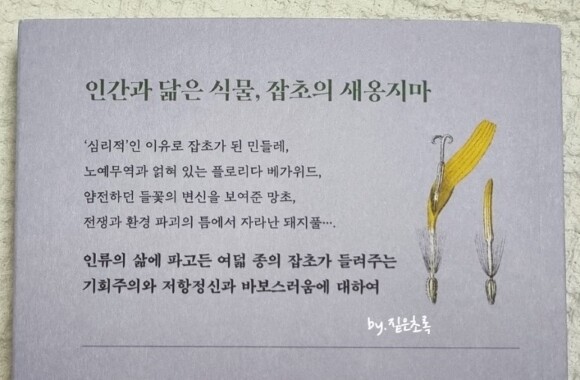 인간과 닮은 식물, 잡초의 새옹지마
‘심리적’인 이유로 잡초가 된 민들레,
노예무역과 얽혀 있는 플로리다 베가위드,
얌전하던 들꽃의 변신을 보여준 망초,
전쟁과 환경 파괴의 틈에서 자라난 돼지풀….
인류의 삶에 파고든 여덟 종의 잡초가 들려주는
기회주의와 저항정신과 바보스러움에 대하여
by.짙은초록